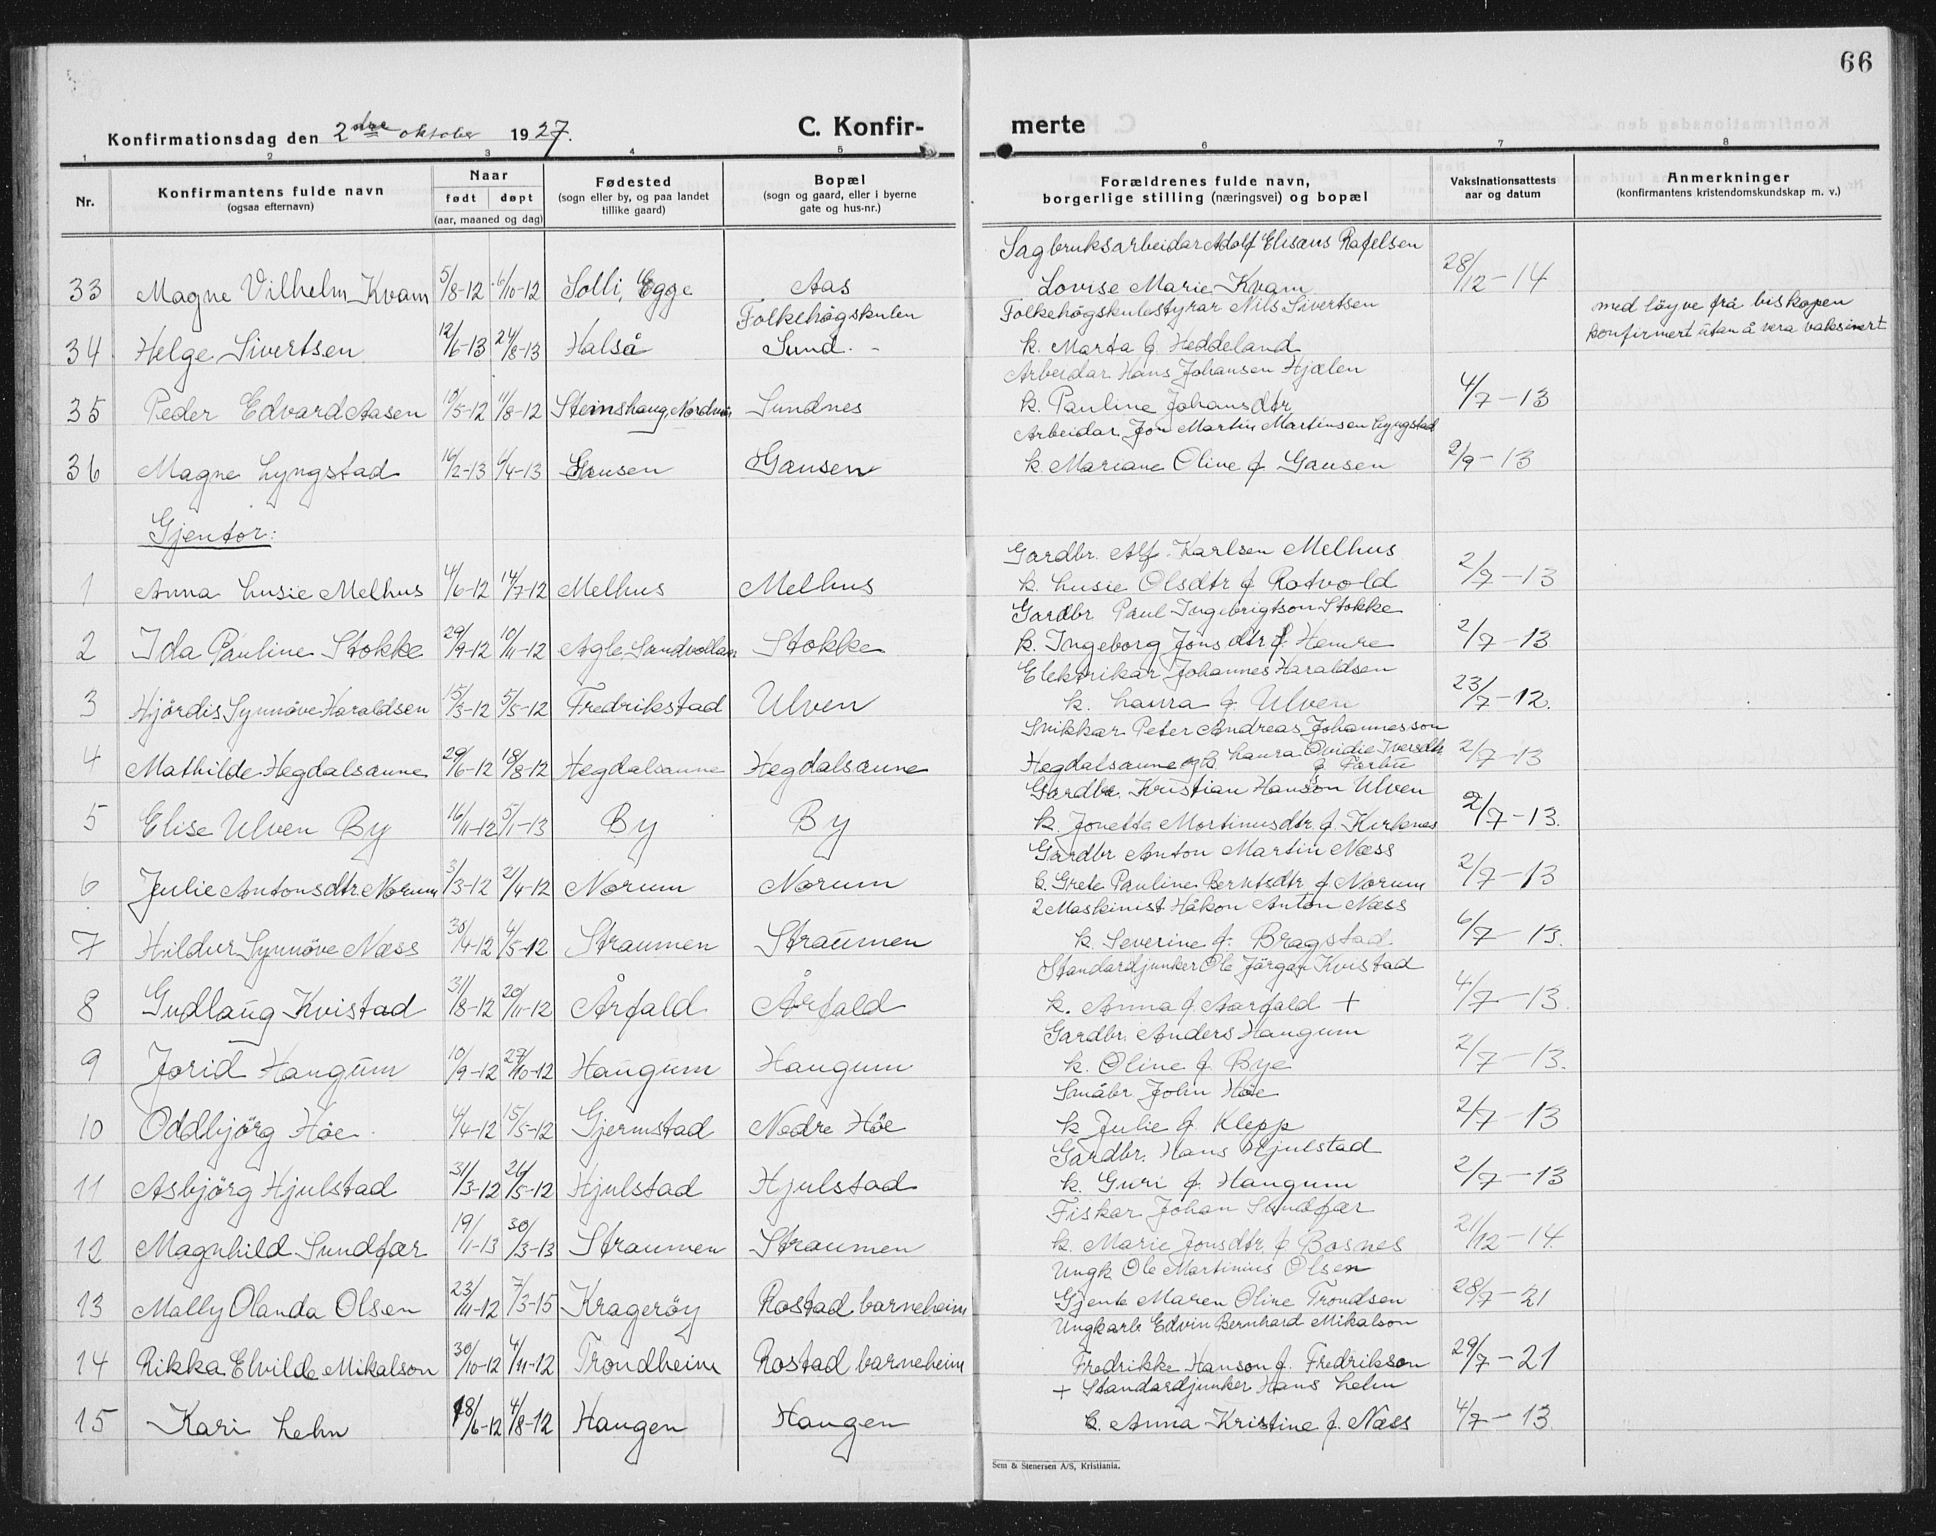 66
Konfirmationsdag den 2dre oktober 1927.
C. Konfirmerte
1 2 3 4 5 6 7 8
Nr.
Konfirmantens fulde navn
(ogsaa efternavn)
Naar
født døpt
(aar, maaned og dag)
Fødested
(sogn eller by, og paa landet
tillike gaard)
Bopæl
(sogn og gaard, eller i byerne
gate og hus-nr.)
Forældrenes fulde navn,
borgerlige stilling (næringsvei) og bopæl
Vaksinationsattests
aar og datum
Anmerkninger
(konfirmantens kristendomskundskap m. v.)
Sagbruksarbeidar Adolf Elisæus Rafelsen
33 Magne Vilhelm Kvam 5/8-12 6/10-12 Solli, Egge Aas Lovise Marie Kvam 28/12-14
Folkehøgskulen Folkehøgskulestyrar Nils Sivertsen med løyve frå biskopen
34 Helge Sivertsen 12/6-13 24/8-13 Halså Sund. k. Marta f. Heddeland konfirmert utan å vera vaksinert
Arbeidar Hans Johansen Hjælen
35 Peder Edvard Aasen 19/5-12 11/8-12 Steinshaug, Sundnes k. Pauline Johansdtr 4/7-13
Arbeidar Jon Martin Martinsen Lyngstad
36 Magne Lyngstad 16/2-13 6/4-13 Gausen Gausen k. Mariane Oline f. Gausen 2/9-13
Gjentor:
Gardbr. Alf Karlsen Melhus
1 Anna Lusie Melhus 4/6-12 14/7-12 Melhus Melhus k. Lusie Olsdtr f. Rotvold 2/7-13
Gardbr Paul Ingebrigtson Stokke
2 Ida Pauline Stokke 29/9-12 10/11-12 Agle, Sandvollan Stokke k. Ingeborg Jonsdtr f. Hemre 2/7-13
Elektrikar Johannes Haraldsen
3 Hjördis Synnöve Haraldsen 15/3-12 5/5-12 Fredrikstad Ulven k. Laura f. Ulven 23/7-12.
Snikkar Peter Andreas Johannesson
4 Mathilde Hegdalsaune 29/6-12 18/8-12 Hegdalsaune Hegdalsaune Hegdalsaune og k. Laura Ovidie Iversdtr f. Farbu 2/7-13
Gardbr. Kristian Hanson Ulven
5 Elise Ulven By 16/11-12 5/1-13 By By k. Jonetta Mortinusdtr. f. Kirknes 2/7-13.
Gardbr Anton Martin Næss
6 Julie Antonsdtr. Norum 3/3-12 2/4-12 Norum Norum k. Grete Pauline Berntsdtr f. Norum 2/7-13
2 Maskinist Håkon Anton Næss
7 Hildur Synnöve Næss 30/4-12 4/5-12 Straumen Straumen k. Severine f. Bragstad. 6/7-13.
Standardjunker Ole Jörgen Kvistad
8 Gudlaug Kvistad 31/8-12 20/11-12 Årfald Årfald k. Anna f. Aarfald + 4/7-13.
Gardbr. Anders Haugum
9 Jorid Haugum 10/9-12 27/10-12 Haugum Haugum k. Oline f. Bye 2/7-13.
Småbr John Höe
10 Oddbjörg Höe 4/4-12 15/5-12 Gjermstad Nedre Höe k Julie f. Klepp 2/7-13
Gardbr. Hans Hjulstad
11 Asbjörg Hjulstad 31/3-12 26/5-12 Hjulstad Hjulstad k. Guri f. Haugum 2/7-13
Fiskar Johan Sundfær
12 Magnhild Sundfær 19/1-13 30/3-13 Straumen Straumen k. Marie Jonsdtr. f. Bosnes 21/12-14.
Ungk. Ole Martinius Olsen
13 Mally Olanda Olsen 23/11-12 7/3-15 Kragerøy Rostad barneheim Gjente Maren Oline Trondsen 28/7-21
Ungkarl Edvin Bernhard Mikalson
14 Rikka Elvilde Mikalson 30/10-12 4/11-12 Trondheim Rostad barneheim Fredrikke Hanson f. Fredrikson 29/7-21
+ Standardjunker Hans Lehn
15 Kari Lehn 18/6-12 4/8-12 Haugen Haugen k. Anna Kristine f. Næss 4/7-13.
Sem & Stenersen A/S, Kristiania.